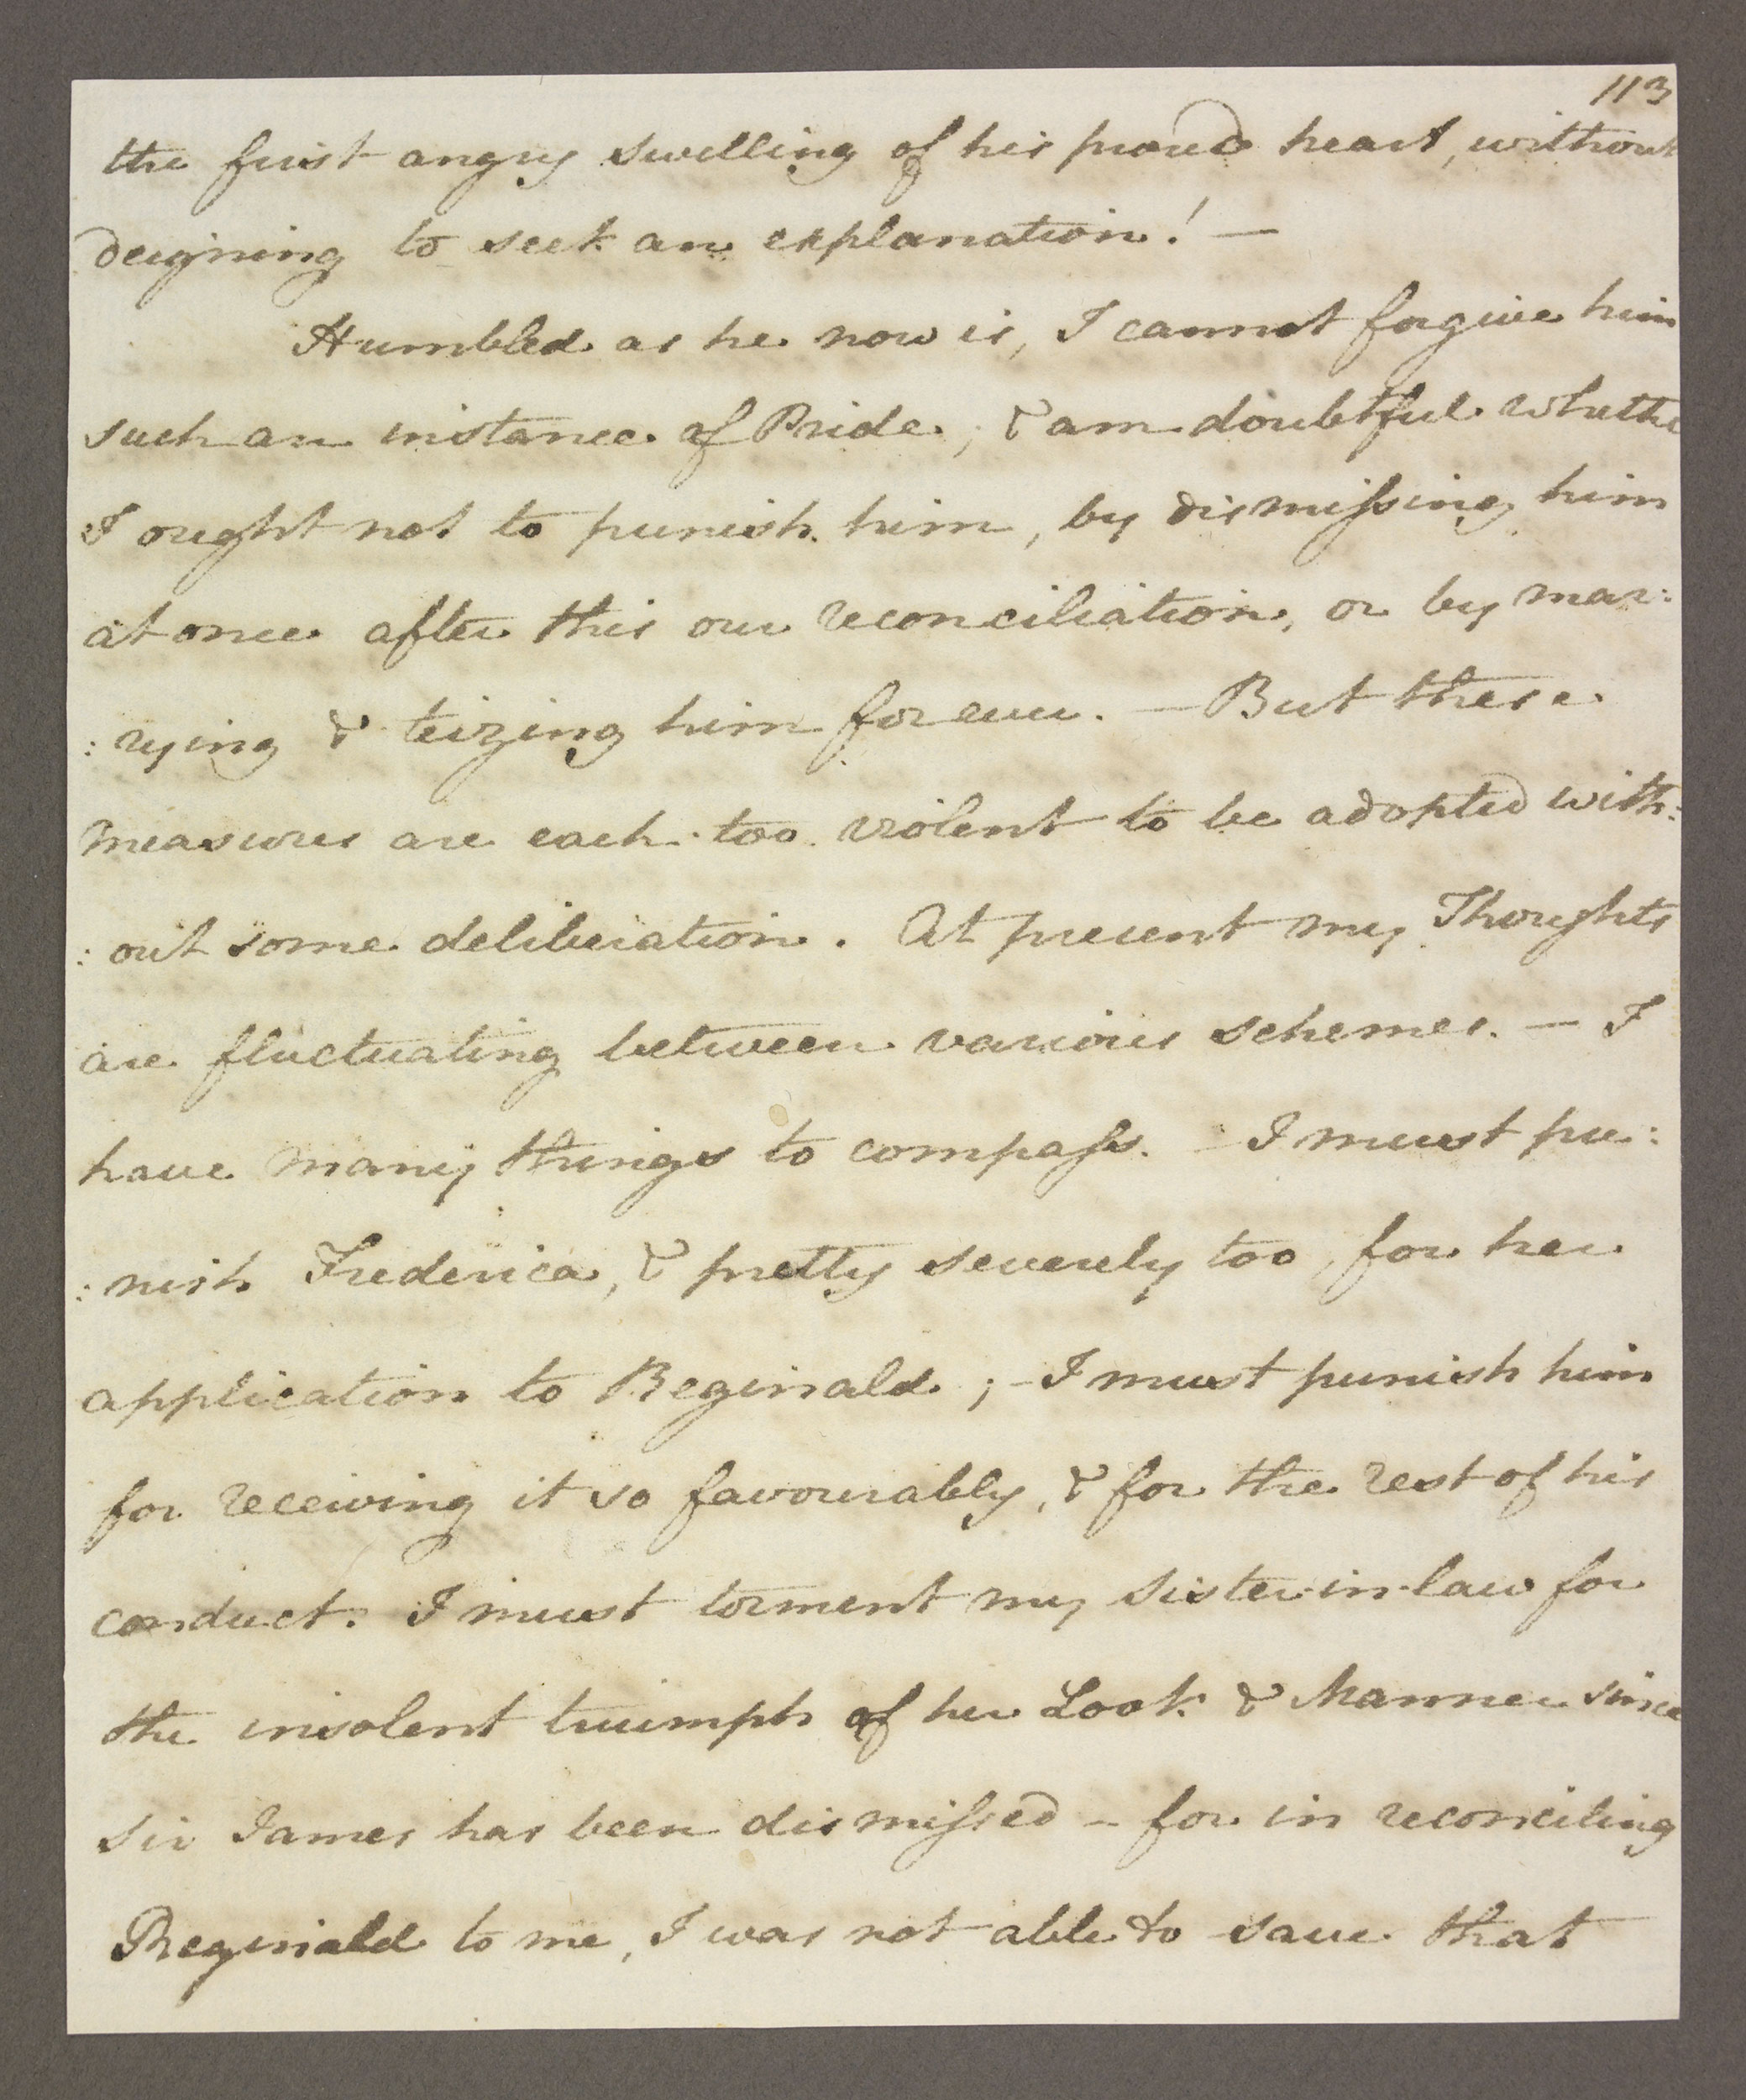 113
the first angry swelling of his proud heart, without
deigning to seek an explanation! —
Humbled as he now is, I cannot forgive him
such an instance of Pride; & am doubtful whether
I ought not to punish him, by dismissing him
at once after this our reconciliation, or by mar:
:rying & teizing him for ever. — But these
measures are each too violent to be adopted with:
:out some deliberation. At present my Thoughts
are fluctuating between various schemes. — I
have many things to compass. — I must pu:
:nish Frederica, & pretty severely too, for her
application to Reginald; — I must punish him
for receiving it so favourably, & for the rest of his
conduct. I must torment my Sister-in-law for
the insolent triumph of her Look & Manner since
Sir James has been dismissed — for in reconciling
Reginald to me, I was not able to save that